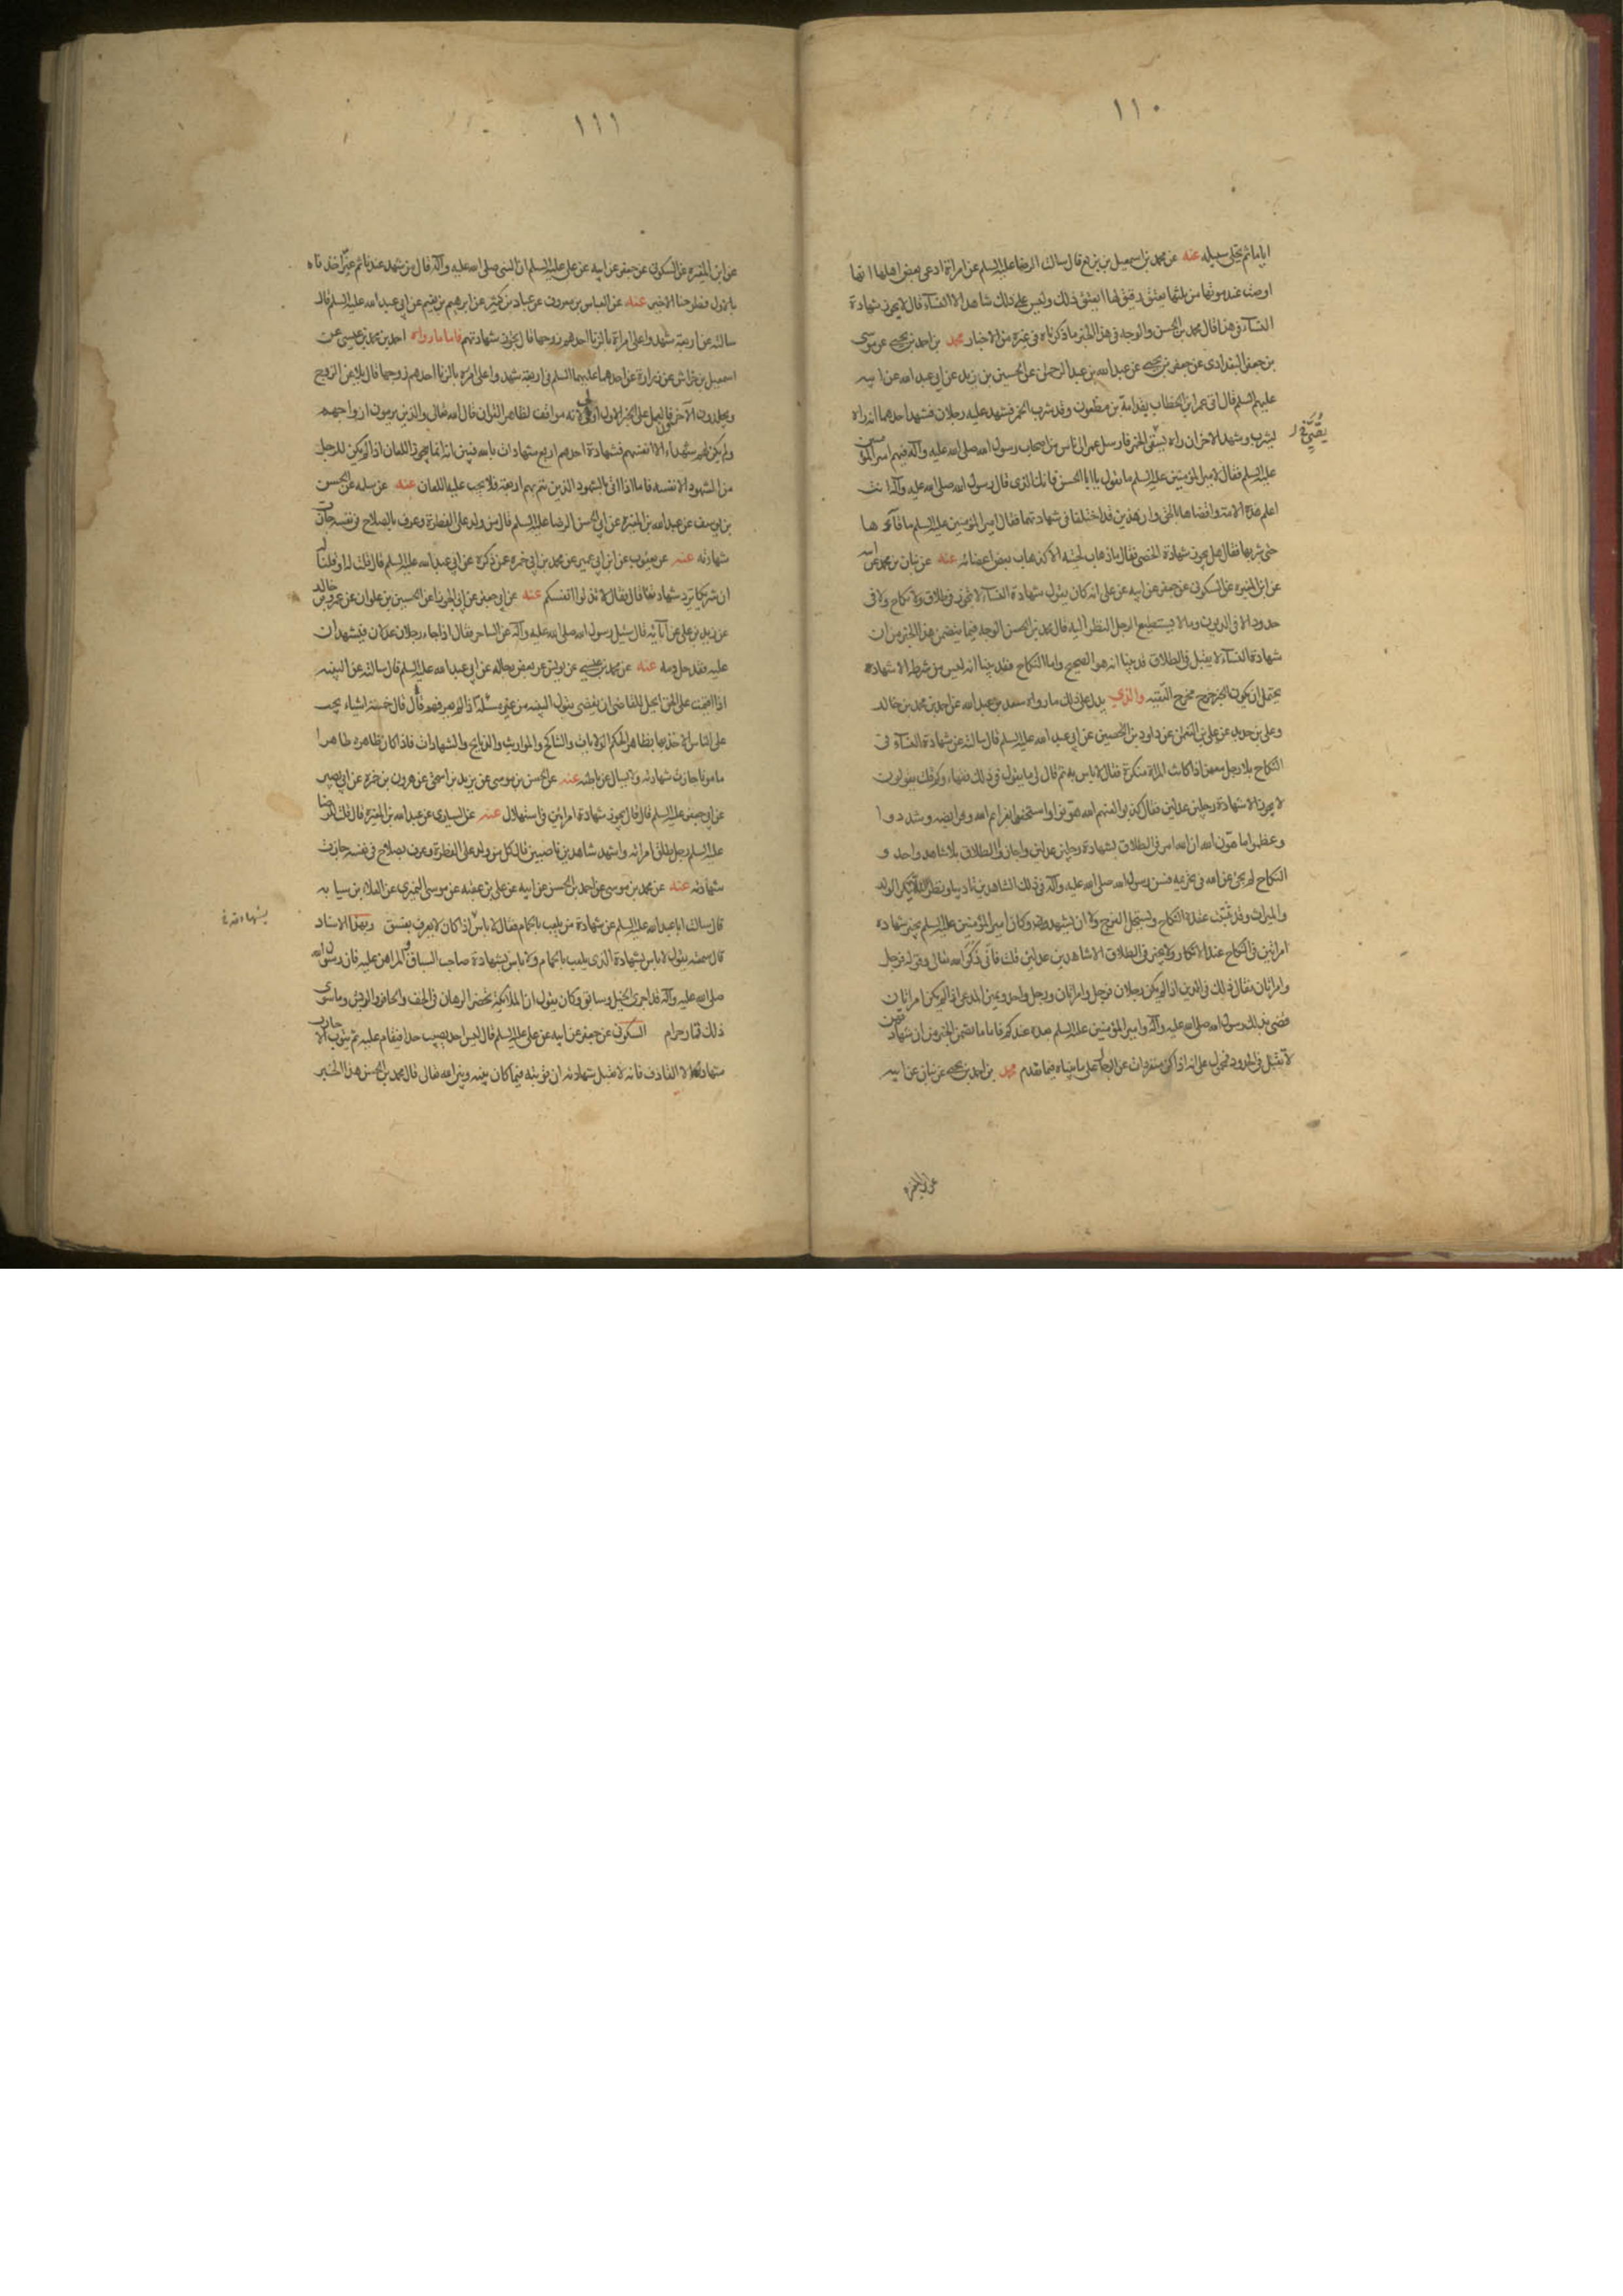 ١١٠
اياما ثم يخلي سبيله عنه عن محمد بن اسمعيل بن بزيع قال سالت الرضا عليه السلم عن امراة ادعى بعض اهلها انها
اوصت عند موتها من ثلثها بعتق رقيق لها ايعتق ذلك وليس على ذلك شاهد الا النساء قال لا يجوز شهادة
النساء في هذا قال محمد بن الحسن والوجه في هذا الخبر ما ذكرناه في غيره من الاخبار محمد بن احمد بن يحيى عن موسى
بن جعفر البغدادى عن جعفر بن يحيى عن عبد الله بن عبد الرحمن عن الحسين بن زيد عن ابي عبد الله عن ابيه
عليهم السلم قال اتى عمر ابن الخطاب بقدامة بن مظعون وقد شرب الخمر فشهد عليه رجلان فشهد احدهما انه راه
يشرب وشهد الاخر ان راه يقئ الخمر فارسل عمر الى ناس من اصحاب رسول الله صلى الله عليه وآله فيهم امير المؤمنين
عليه السلم فقال لامير المؤمنين عليه السلم ما تقول يا ابا الحسن فانك الذى قال رسول الله صلى الله عليه وآله انت
اعلم هذه الامة واقضاها بالحق وان هذين قد اختلفا في شهادتهما فقال امير المؤمنين عليه السلم ما قاءها
حتى شربها فقال هل يجوز شهادة الخصى فقال ما ذهاب لحيته الا كذهاب بعض اعضائه عنه عن بنان بن محمد عن ابيه
عن ابن المغيره عن السكونى عن جعفر عن ابيه عن على انه كان يقول شهادة النساء لا تجوز في طلاق ولا نكاح ولا في
حدود الا في الديون وما لا يستطيع الرجل النظر اليه قال محمد بن الحسن الوجه فيما يتضمن هذا الخبر من ان
شهادة النساء لا يقبل في الطلاق قد بينا انه هو الصحيح واما النكاح فقد بينا انه ليس من شرطه الاشهاد
يحتمل ان يكون الخبر خرج مخرج التقيه والذى يدل على ذلك ما رواه سعد بن عبد الله عن احمد بن محمد بن خالد
وعلى بن حديد عن على بن النعمان عن داود بن الحصين عن ابى عبد الله عليه السلم قال سالته عن شهادة النساء في
النكاح بلا رجل معهن اذا كانت المراة منكرة فقال لا باس به ثم قال لى ما يقول في ذلك فقهاؤكم قلت يقولون
لا يجوز الا شهادة رجلين عدلين فقال كذبوا لعنهم الله هونوا واستخفوا بعزائم الله وفرايضه وشددوا
وعظموا ما هون الله ان الله امر في الطلاق بشهادة رجلين عدلين واجازوا الطلاق بلا شاهد واحد و
النكاح لم يجئ عن الله في تحريمه فسن رسول الله صلى الله عليه وآله في ذلك الشاهدين تاديبا ونظرا لئلا ينكر الولد
والميراث وقد ثبت عقدة النكاح ويستحل الفرج ولا ان يشهد وكان امير المؤمنين عليه السلم يجيز شهادة
امراتين في النكاح عند الانكار ولا يجيز في الطلاق الا شاهدين عدلين قلت فانى ذكر الله تعالى وقوله فرجل
وامراتان فقال ذلك في الدين اذا لم يكن رجلان فرجل وامراتان ورجل واحد ويمين المدعى اذا لم يكن امراتان
قضى بذلك رسول الله صلى الله عليه وآله وامير المؤمنين عليه السلم بعده عندكم فاما ما تضمن الخبر من ان شهادتهن
لا تقبل في الحدود فمحمول على انه اذا كن منفردات عن الرجال على ما بيناه فيما تقدم محمد بن احمد بن يحيى عن بنان عن ابيه
عن ابن المغيره
١١١
عن ابن المغيره عن السكونى عن جعفر عن ابيه عن على عليه السلم ان النبى صلى الله عليه وآله قال من شهد عندنا ثم غير اخذناه
بالاول وطرحنا الاخير عنه عن العباس بن معروف عن عباد بن كثير عن ابرهيم بن نعيم عن ابى عبد الله عليه السلم قال
سالته عن اربعة شهدوا على امراة بالزنا احدهم زوجها قال يجوز شهادتهم فاما ما رواه احمد بن محمد بن عيسى عن
اسمعيل بن خراش عن زرارة عن احدهما عليهما السلم في اربعة شهدوا على امراه بالزنا احدهم زوجها قال يلاعن الزوج
ويجلدون الآخرون فالعمل على الخبر الاول اولى لانه موافق لظاهر القران قال الله تعالى والذين يرمون ازواجهم
ولم يكن لهم شهداء الا انفسهم فشهادة احدهم اربع شهادات بالله فبين انه انما يجوز اللعان اذا لم يكن للرجل
من الشهود الا نفسه فاما اذا اتى بالشهود الذين يتم بهم اربعة فلا يجب عليه اللعان عنه عن سلمه عن الحسن
بن يوسف عن عبد الله بن المغيره عن ابى الحسن الرضا عليه السلم قال من ولد على الفطرة وعرف بالصلاح في نفسه جازت
شهادته عنه عن يعقوب عن ابن ابى عمير عن محمد بن ابى حمزه عن ذكره عن ابى عبد الله عليه السلم قال
ان شريكا يرد شهادتنا قال فقال لا تذلوا انفسكم عنه عن ابى جعفر عن ابى الجوزا عن الحسين بن علوان عن عمرو بن خالد
عن زيد بن على عن آبائه قال سئل رسول الله صلى الله عليه وآله عن الساحر فقال اذا جاء رجلان عدلان فيشهدان
عليه فقد حل دمه عنه عن محمد بن عيسى عن يونس عن بعض رجاله عن ابى عبد الله عليه السلم قال سالته عن البينه
اذا اقيمت على الحق ايحل للقاضى ان يقضى بقول البينه من غير مسئلة اذا لم يعرفهم قال فقال خمسة اشياء يجب
على الناس الاخذ بها بظاهر الحكم الولايات والتناكح والمواريث والذبايح والشهادات فاذا كان ظاهره ظاهرا
مامونا جازت شهادته ولا يسال عن باطنه عنه عن الحسن بن موسى عن يزيد بن اسحق عن هرون بن حمزه عن ابى بصير
عن ابى جعفر عليه السلم قال قال يجوز شهادة امراتين في استهلال عنه عن السيارى عن عبد الله بن المغيره قال قلت للرضا
عليه السلم رجل طلق امراته واشهد شاهدين ناصبيين قال كل من ولد على الفطرة وعرف بصلاح في نفسه جازت
شهادته عنه عن محمد بن موسى عن احمد بن الحسن عن ابيه عن على بن عقبه عن موسى النميرى عن العلا بن سيابه
قال سالت ابا عبد الله عليه السلم عن شهادة من يلعب بالحمام فقال لا باس اذا كان لا يعرف بفسق وبهذا الاسناد
قال سمعته يقول لا باس بشهادة الذى يلعب بالحمام ولا باس بشهادة صاحب السباق المراهن عليه فان رسول الله
صلى الله عليه وآله قد اجرى الخيل وسابق وكان يقول ان الملائكة تحضر الرهان في الخف والحافر والريش وما سوى
ذلك قمار حرام السكونى عن جعفر عن ابيه عن على عليه السلم قال ليس احد يصيب حدا فيقام عليه ثم يتوب الا جازت
شهادته الا القاذف فانه لا تقبل شهادته ان توبته فيما كان بينه وبين الله تعالى قال محمد بن الحسن هذا الخبر